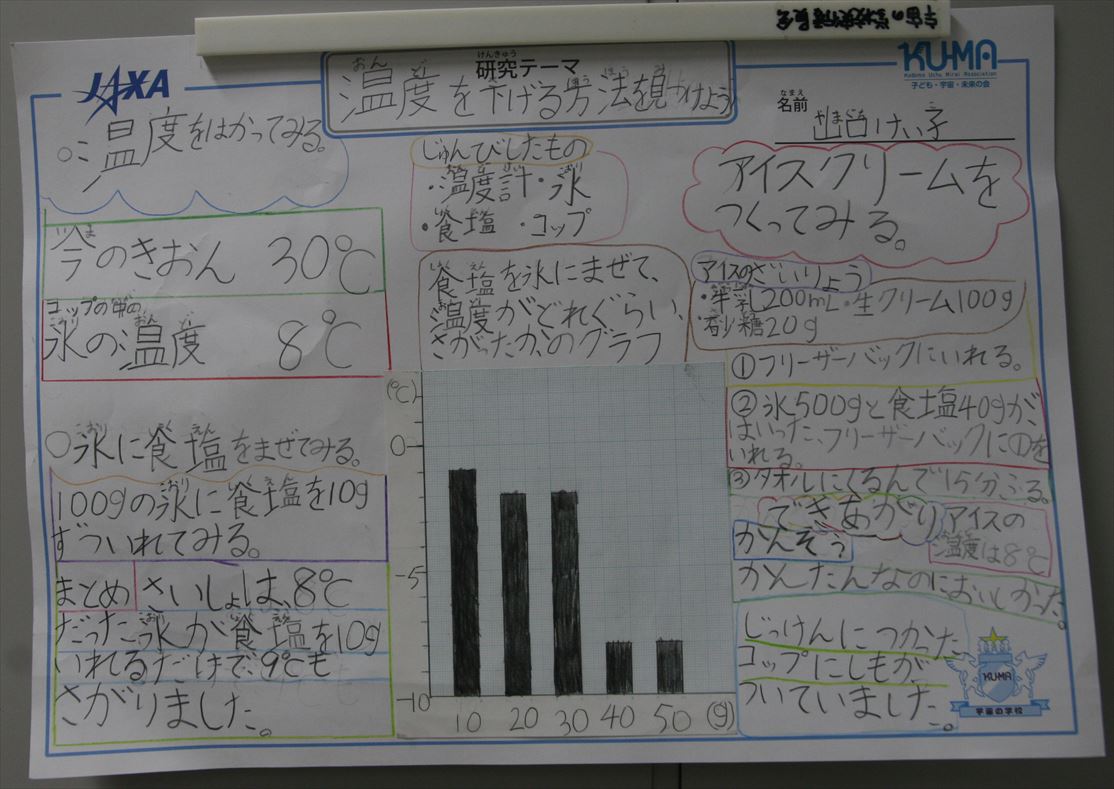 宇宙の学校
JAXA
KUMA
Kodomo Uchu Mirai Association
子ども・宇宙・未来の会
けんきゅう
研究テーマ
おん ど さ ほう ほう み
温度を下げる方法を見つけよう
なまえ
名前
けい子
○温度をはかってみる。
いま
今のきおん 30℃
コップの中の
こおり おん ど
氷の温度 8℃
○氷に食塩をまぜてみる。
100gの氷に食塩を10g
ずついれてみる。
まとめ さいしょは、8℃
だった氷が食塩を10g
いれるだけで、9℃も
さがりました。
じゅんびしたもの
・温度計・氷
・食塩 ・コップ
食塩を氷にまぜて、
温度がどれぐらい、
さがったか、のグラフ
(℃)
0
-5
-10
10 20 30 40 50 (g)
アイスクリームを
つくってみる。
アイスのざいりょう
・牛乳200mL・生クリーム100g
・砂糖20g
①フリーザーバックにいれる。
②氷500gと食塩40gが
はいった、フリーザーバックに①を
いれる。
③タオルにくるんで15分ふる。
できあがり
アイスの
温度は8℃
かんそう
かんたんなのにおいしかった。
じっけんにつかった
コップにしもが、
ついていました。
KUMA
宇宙の学校